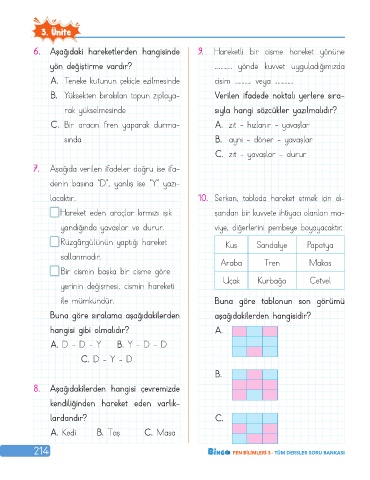 3. Ünite
6. Aşağıdaki hareketlerden hangisinde
yön değiştirme vardır?
A. Teneke kutunun çekiçle ezilmesinde
B. Yüksekten bırakılan topun zıplaya-
rak yükselmesinde
C. Bir aracın fren yaparak durma-
sında
7. Aşağıda verilen ifadeler doğru ise ifa-
denin başına "D", yanlış ise "Y" yazı-
lacaktır.
Hareket eden araçlar kırmızı ışık
yandığında yavaşlar ve durur.
Rüzgârgülünün yaptığı hareket
sallanmadır.
Bir cismin başka bir cisme göre
yerinin değişmesi, cismin hareketi
ile mümkündür.
Buna göre sıralama aşağıdakilerden
hangisi gibi olmalıdır?
A. D - D - Y B. Y - D - D
C. D - Y - D
8. Aşağıdakilerden hangisi çevremizde
kendiliğinden hareket eden varlık-
lardandır?
A. Kedi B. Taş C. Masa
9. Hareketli bir cisme hareket yönüne
........... yönde kuvvet uyguladığımızda
cisim ........... veya ............
Verilen ifadede noktalı yerlere sıra-
sıyla hangi sözcükler yazılmalıdır?
A. zıt - hızlanır - yavaşlar
B. aynı - döner - yavaşlar
C. zıt - yavaşlar - durur
10. Serkan, tabloda hareket etmek için dı-
şarıdan bir kuvvete ihtiyacı olanları ma-
viye, diğerlerini pembeye boyayacaktır.
Kuş Sandalye Papatya
Araba Tren Makas
Uçak Kurbağa Cetvel
Buna göre tablonun son görümü
aşağıdakilerden hangisidir?
A.
B.
C.
214
BİNGO FEN BİLİMLERİ 3 - TÜM DERSLER SORU BANKASI